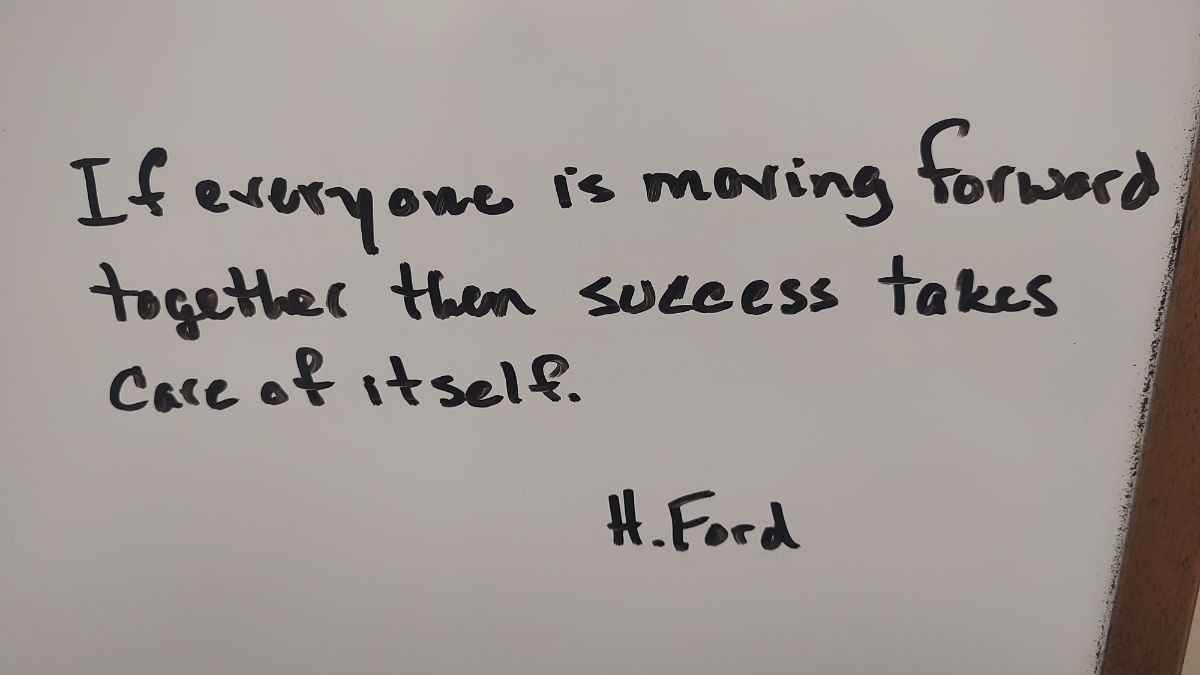 If everyone is moving forward
together then success takes
care of itself.
H. Ford